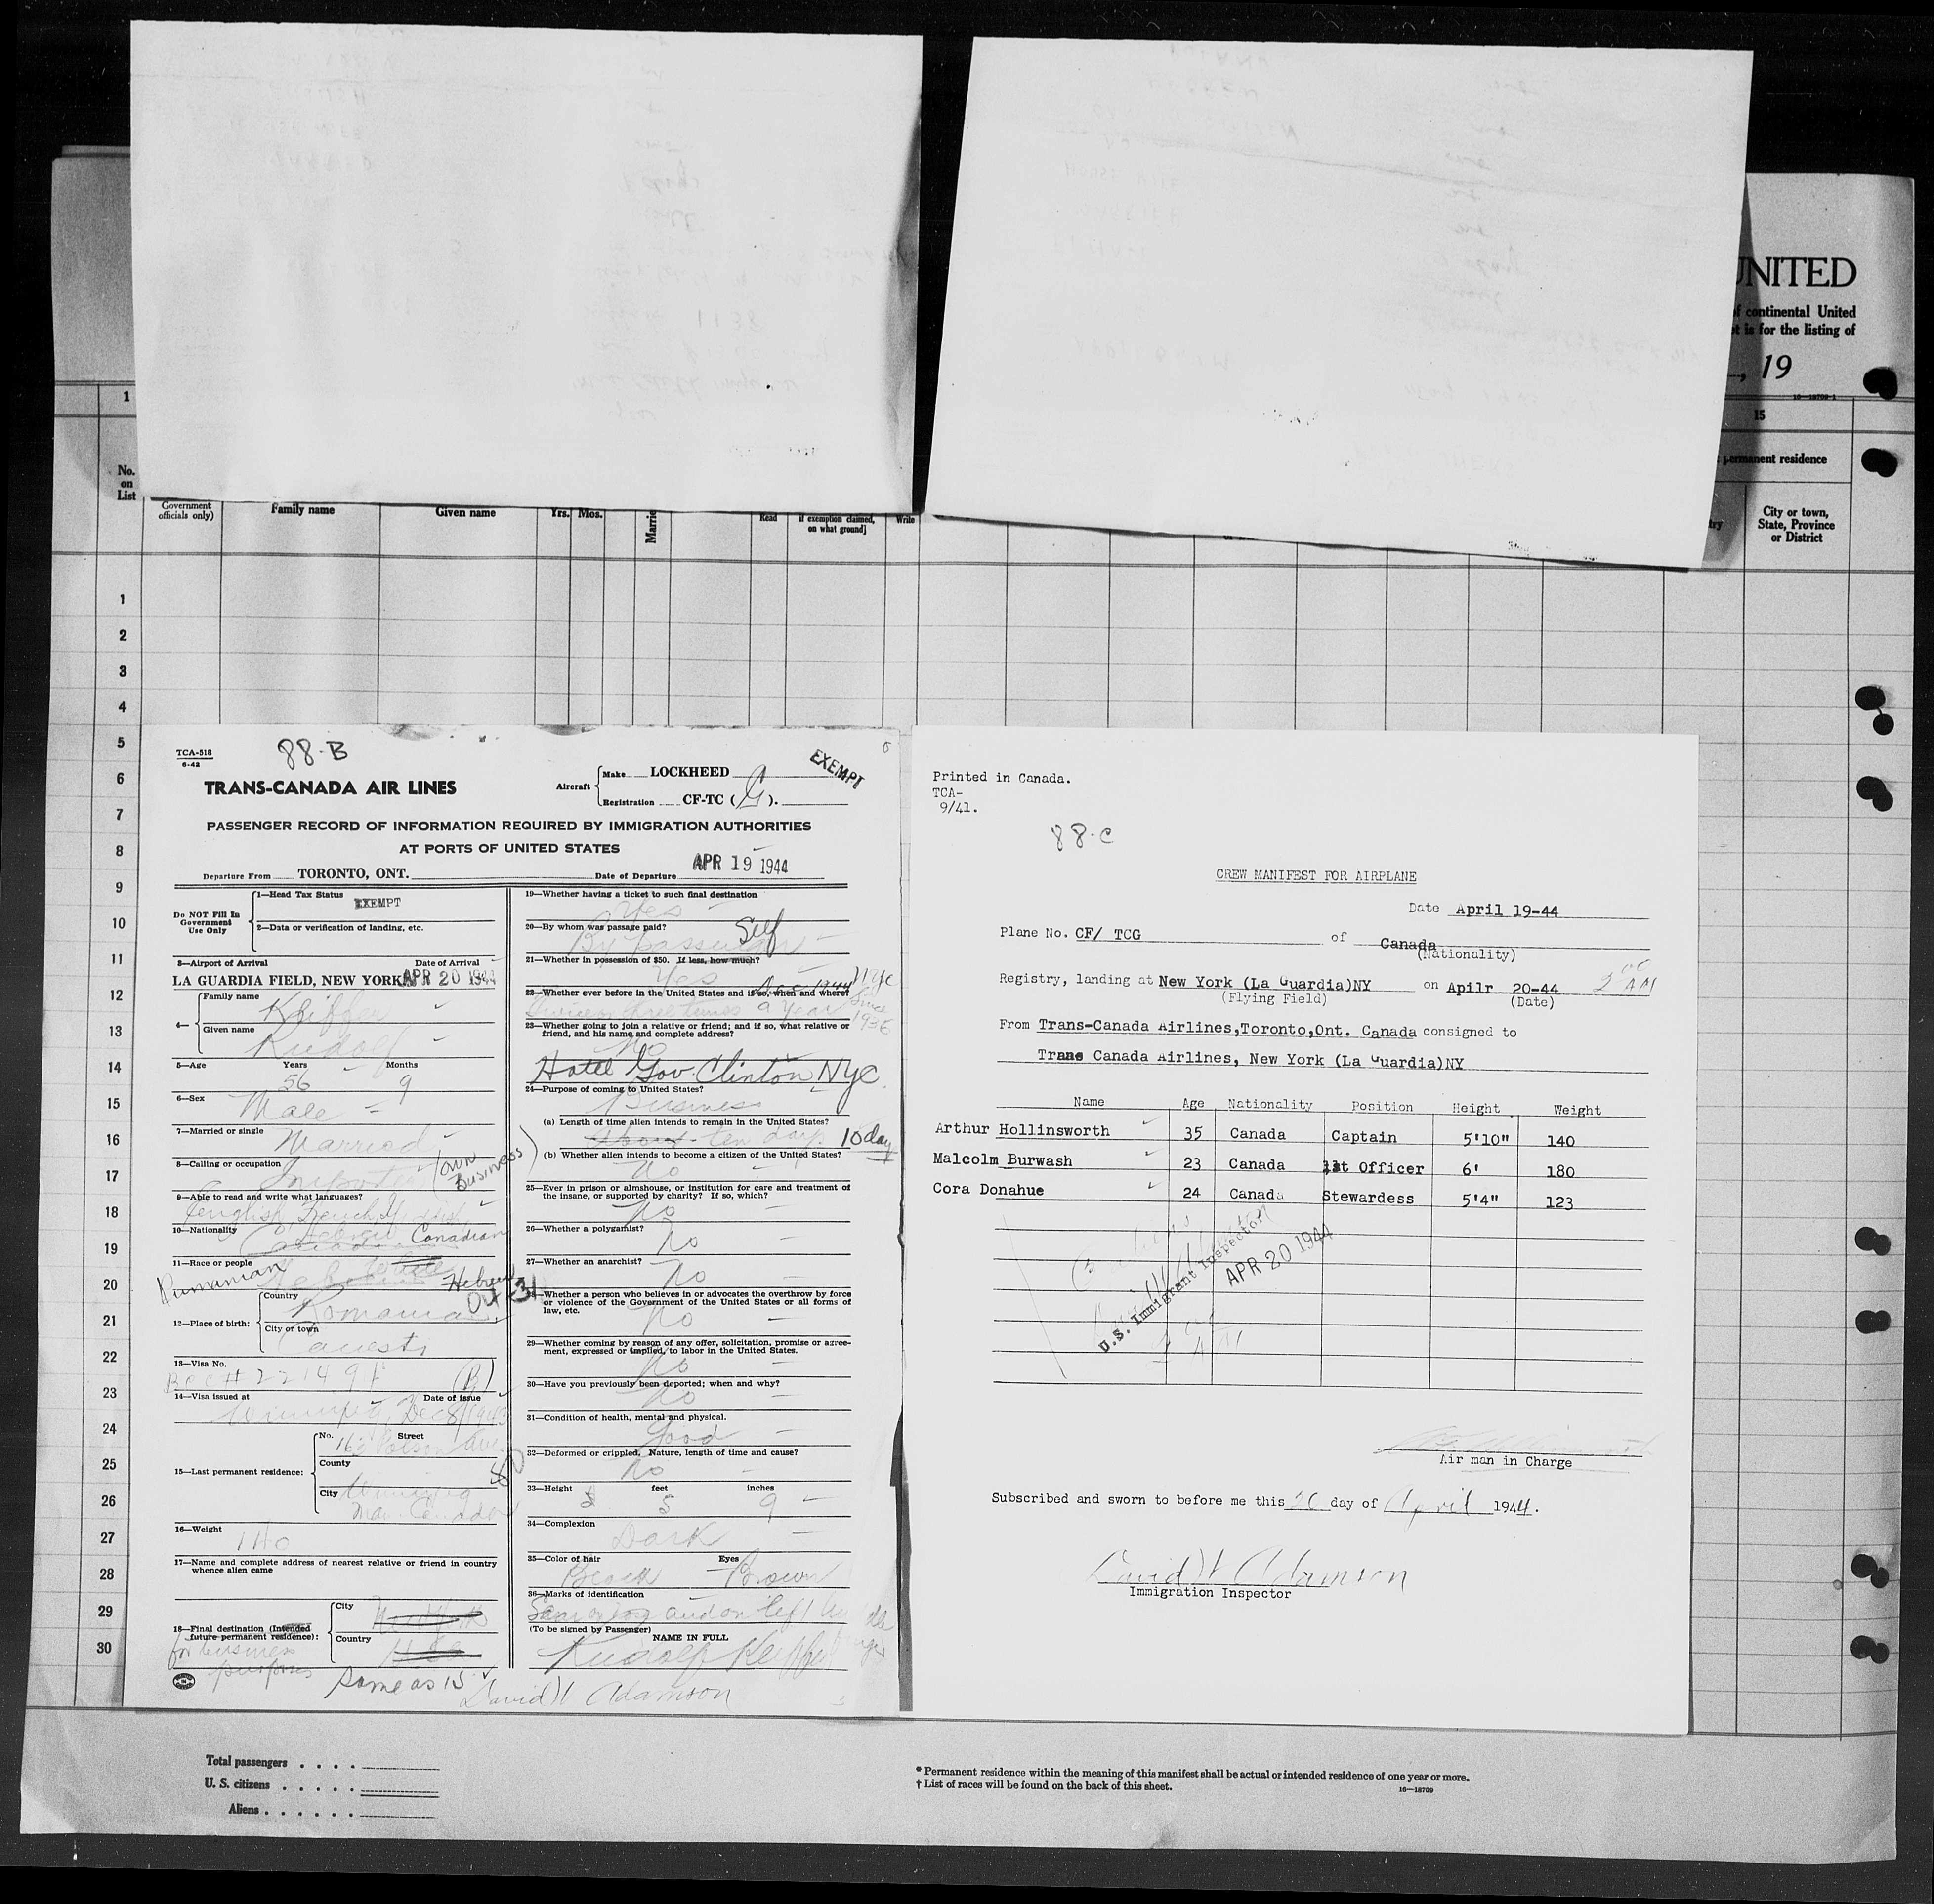 UNITED
of continental United
is for the listing of
, 19
16—18709-1
1
15
permanent residence
No.
on
List
Government
officials only)
Family name
Given name
Yrs.
Mos.
Read
if exemption claimed,
on what ground]
Write
City or town,
State, Province
or District
1
2
3
4
5
6
7
8
9
10
11
12
13
14
15
16
17
18
19
20
21
22
23
24
25
26
27
28
29
30
TCA-518
6-42
88-B
EXEMPT
TRANS-CANADA AIR LINES
Aircraft
Make LOCKHEED
Registration CF-TC (G).
PASSENGER RECORD OF INFORMATION REQUIRED BY IMMIGRATION AUTHORITIES
AT PORTS OF UNITED STATES
Departure From TORONTO, ONT. Date of Departure APR 19 1944
Do NOT Fill In
Government
Use Only
1—Head Tax Status
EXEMPT
2—Data or verification of landing, etc.
3—Airport of Arrival Date of Arrival
LA GUARDIA FIELD, NEW YORK APR 20 1944
4—
Family name
Given name
Rudolf
5—Age Years Months
56 9
6—Sex
Male
7—Married or single
Married
8—Calling or occupation
Importer (own
Business)
9—Able to read and write what languages?
English, French,
10—Nationality
Canadian
11—Race or people
Rumanian
Hebrew
12—Place of birth:
Country
Romania
City or town
13—Visa No.
(B)
14—Visa issued at Date of issue
Winnipeg, Dec 8/1943
15—Last permanent residence:
No. Street
County
City
Winnipeg
Man. Canada
16—Weight
140
17—Name and complete address of nearest relative or friend in country
whence alien came
18—Final destination (Intended
future permanent residence):
City
Country
for business
purposes
Same as 15
David H Adamson
19—Whether having a ticket to such final destination
Yes
20—By whom was passage paid?
By passenger Self
21—Whether in possession of $50. If less, how much?
Yes
22—Whether ever before in the United States and if so, when and where?
Dec 1944 NYC
since
1936
23—Whether going to join a relative or friend; and if so, what relative or
friend, and his name and complete address?
No
Hotel Gov. Clinton NYC.
24—Purpose of coming to United States?
Business
(a) Length of time alien intends to remain in the United States?
About ten days. 10 day
(b) Whether alien intends to become a citizen of the United States?
No
25—Ever in prison or almshouse, or institution for care and treatment of
the insane, or supported by charity? If so, which?
No
26—Whether a polygamist?
No
27—Whether an anarchist?
No
28—Whether a person who believes in or advocates the overthrow by force
or violence of the Government of the United States or all forms of
law, etc.
No
29—Whether coming by reason of any offer, solicitation, promise or agree-
ment, expressed or implied, to labor in the United States.
No
30—Have you previously been deported; when and why?
No
31—Condition of health, mental and physical.
Good
32—Deformed or crippled. Nature, length of time and cause?
No
33—Height feet inches
5 9
34—Complexion
Dark
35—Color of hair Eyes
Black Brown
36—Marks of identification
(To be signed by Passenger)
NAME IN FULL
Printed in Canada.
TCA-
9/41.
88-C
CREW MANIFEST FOR AIRPLANE
Date April 19-44
Plane No. CF/ TCG of Canada
(Nationality)
Registry, landing at New York (La Guardia)NY on Apilr 20-44 2 00 AM
(Flying Field) (Date)
From Trans-Canada Airlines,Toronto,Ont. Canada consigned to
Trans Canada Airlines, New York (La Guardia)NY
Name Age Nationality Position Height Weight
Arthur Hollinsworth 35 Canada Captain 5'10" 140
Malcolm Burwash 23 Canada 1st Officer 6' 180
Cora Donahue 24 Canada Stewardess 5'4" 123
U.S. Immigrant Inspector
APR 20 1944
Air man in Charge
Subscribed and sworn to before me this 20 day of April 1944.
David H Adamson
Immigration Inspector
Total passengers . . . .
U. S. citizens . . . . .
Aliens . . . . . .
* Permanent residence within the meaning of this manifest shall be actual or intended residence of one year or more.
† List of races will be found on the back of this sheet.
16—18709